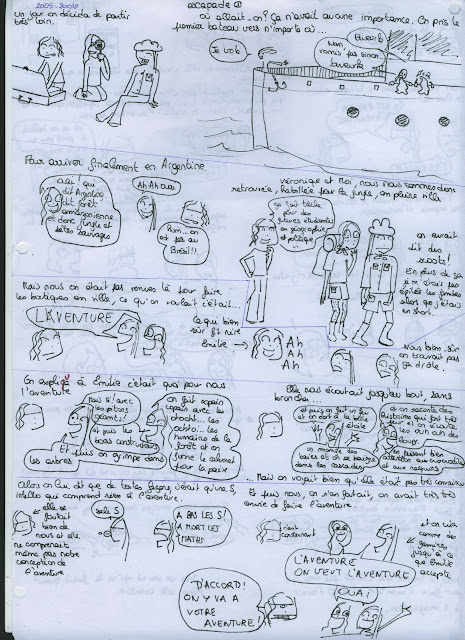 2005-2006
escapade ①
Un jour on décida de partir
très loin.
où allait-on? Ça n'avait aucune importance. On prit le
premier bateau vers n'importe où...
Je vote
Bweurk
Non,
vomis pas sinon
bweurk
Pour arriver finalement en Argentine.
qui dit
forêt
amazonienne
et donc jungle et
bêtes sauvages
Ah Ah oui
Hum... on
est pas au
Brésil!!
Véronique et Moi, nous nous sommes donc
retrouvées, habillées pour la jungle, en pleine ville
ça fait tache
pour des
futures étudiantes
en géographie
et politique
on
avait
dit des
scouts!
En plus de ça
je m'étais pas
épilée les jambes
alors que j'étais
en short.
Mais nous on était pas venues là pour faire
les boutiques en ville, ce qu'on voulait c'était...
L'AVENTURE
ce qui bien
sûr fit rire
Emilie →
Ah
Ah
Ah
Ah
Nous bien sûr
on trouvait pas
ça drôle.
On expliqua à Emilie c'était quoi pour nous
l'aventure.
Mais si! avec
les pitons
géants!
et puis les
boas constrictors
on fait copain
copain avec les
otoch... les
octo... les
humains de la
forêt et on
fume le calumet
pour la paix
Et puis on grimpe dans
les arbres
Elle nous écoutait jusqu'au bout sans
broncher...
et puis on fait un feu
et on dort à la belle
étoile
on se raconte des
histoires qui font très
peur et on écoute
les
on mange des
baies et on se baigne
dans les cascades
en faisant bien
attention aux crocodiles
et aux requins
Alors on lui dit que de toutes façons c'était qu'une S,
celles qui comprend rien à l'aventure.
← elle se
foutait
bien de
nous et elle
ne comprenait
même pas notre
conception de
l'aventure
sale S
A BAS LES S!
A MORT LES
MATHS!
... Mais on voyait bien qu'elle était pas très convaincue
Et puis nous, on s'en foutait, on avait très très
envie de faire l'aventure.
← c'est
contrariant
et on cria
comme des
gamines
jusqu'à ce
que Emilie
accepte
L'AVENTURE
ON VEUT L'AVENTURE
OUAI!
D'ACCORD!
ON Y VA A
VOTRE
AVENTURE!